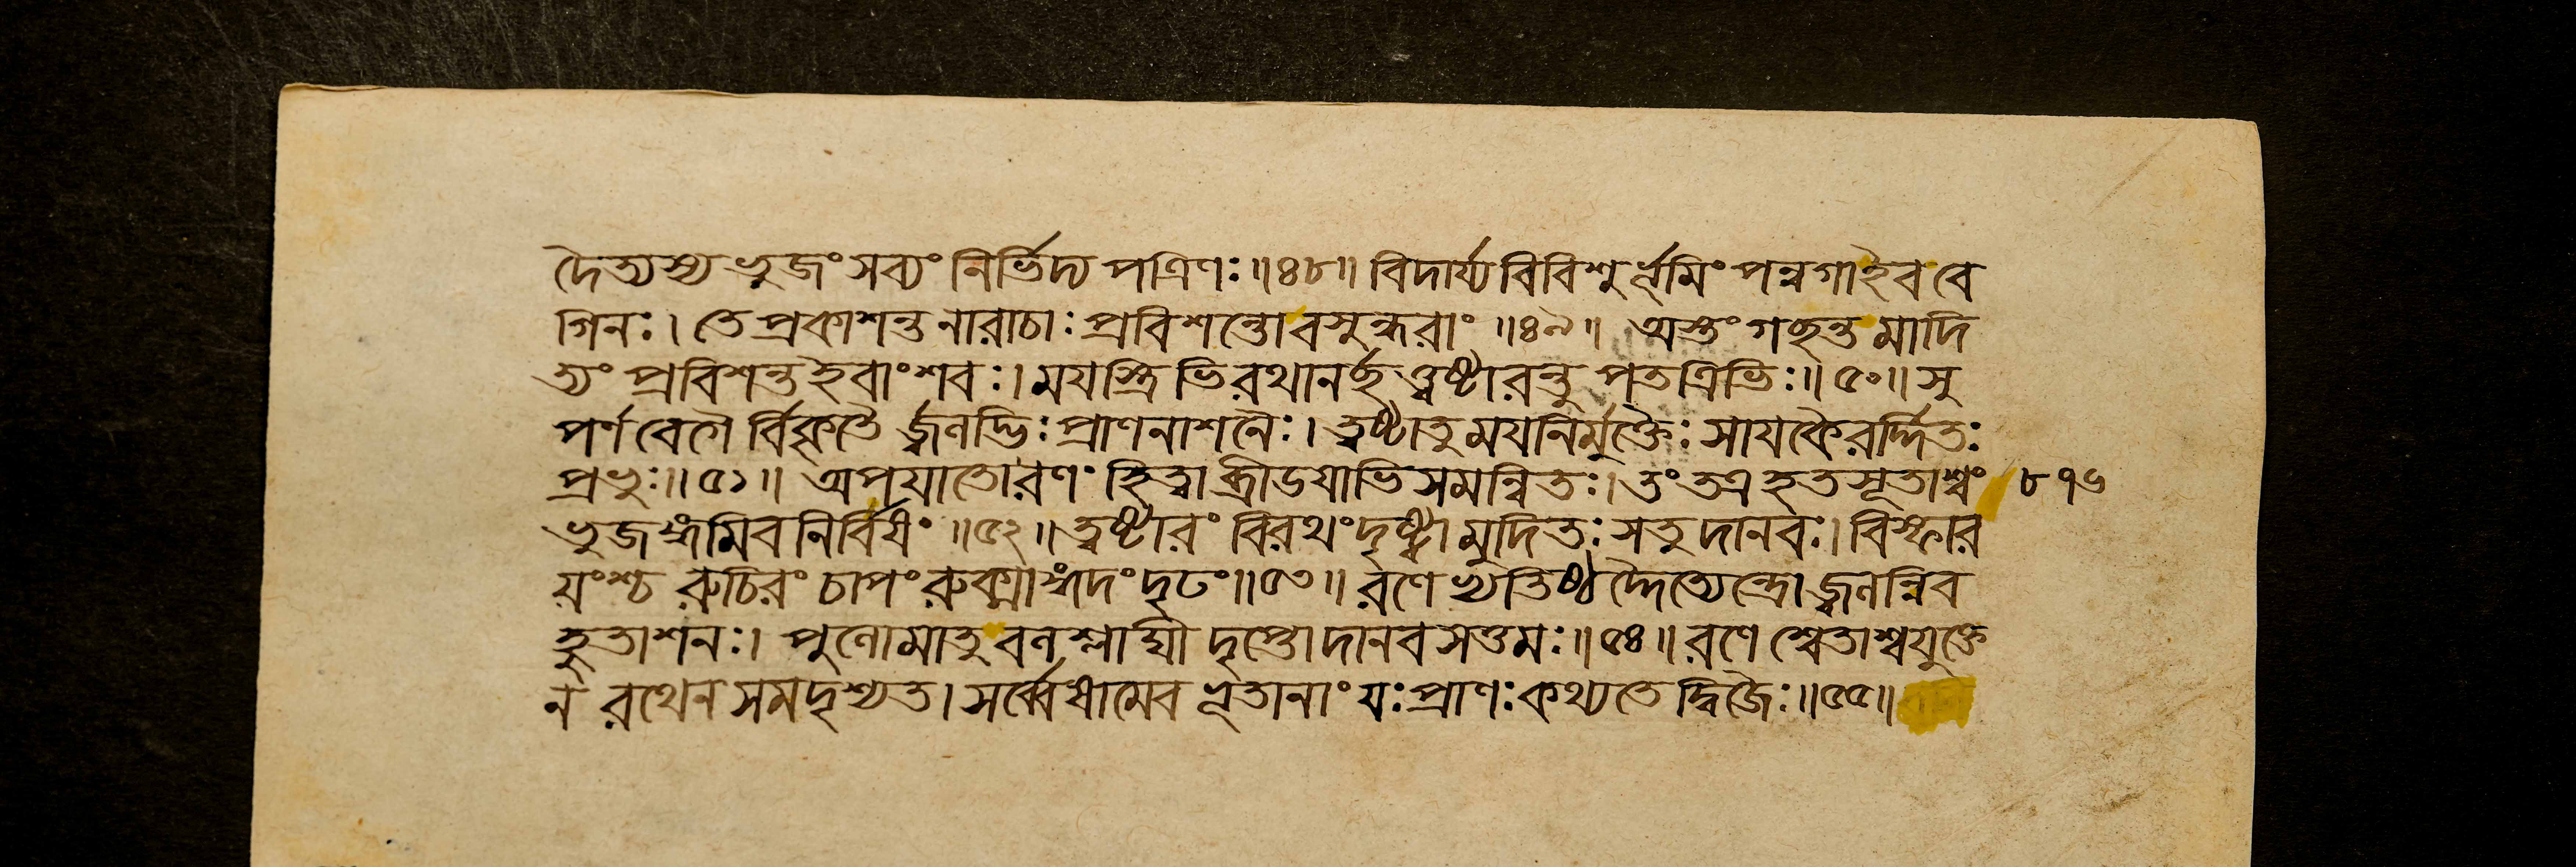 দৈত্যস্য ভুজং সব্যং নির্ভিদ্য পত্রিণঃ॥৪৮॥ বিদার্য্য বিবিশুর্ভূমিং পন্নগাইব বে
গিনঃ। তে প্রকাশন্ত নারাচাঃ প্রবিশন্তো বসুন্ধরাং॥৪৯॥ অস্তং গছন্ত মাদি
ত্যং প্রবিশন্ত ইবাংশবঃ। ময়স্ত্রিভিরথানর্ছ ত্ত্বষ্টারন্তু পতত্রিভিঃ॥৫০॥ সু
পর্ণবেগৈ র্বিকৃতৈ র্জ্বলদ্ভিঃ প্রাণনাশনৈঃ। ত্বষ্টাতু ময়নির্মুক্তৈঃ সায়কৈরর্দ্দিতঃ
প্রভুঃ॥৫১॥ অপযাতো রণং হিত্বা ব্রীডয়াভিসমন্বিতঃ। তং তত্র হতসূতাশ্বং ৮৭৬
ভুজঙ্গমিব নির্বিষং॥৫২॥ ত্বষ্টারং বিরথং দৃষ্ট্বা মুদিতঃ সতু দানবঃ। বিস্ফার
য়ংশ্চ রুচিরং চাপং রুক্মাঙ্গদং দৃঢং॥৫৩॥ রণে ভ্যতিষ্ঠ দ্দৈত্যেন্দ্রো জ্বলন্নিব
হুতাশনঃ। পুলোমাতু বলশ্লাঘী দৃপ্তো দানবসত্তমঃ॥৫৪॥ রণে শ্বেতাশ্বযুক্তে
ন রথেন সমদৃশ্যত। সর্ব্বেষামেব ভূতানাং যঃ প্রাণঃ কথ্যতে দ্বিজৈঃ॥৫৫॥